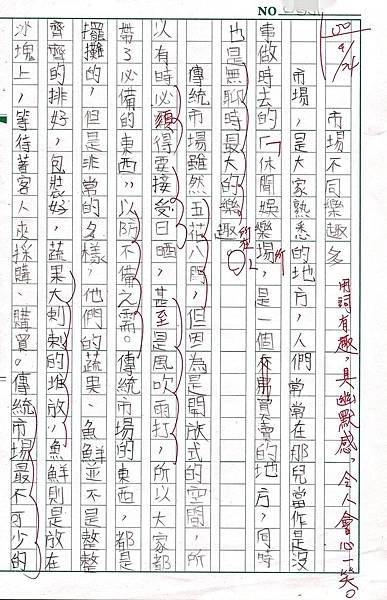 NO
100
9/24
用詞有趣，具幽默感，令人會心一笑。
市場不同樂趣多
市場，是大家熟悉的地方，人們常常在那兒當作是沒
事做時去的「休閒娛樂場所」，是一個買賣的地方，同時
也是無聊時最大的樂趣所在。
傳統市場雖然五花八門，但因為是開放式的空間，所
以有時必須得要接受日晒，甚至是風吹雨打，所以大家都
帶了必備的東西，以防不備之需。傳統市場的東西，都是
擺攤的，但是非常的多樣，他們的蔬果、魚鮮並不是整整
齊齊的排好，包裝好，蔬果大刺刺的堆放，魚鮮則是放在
冰塊上，等待著客人來採購、購買。傳統市場最不可少的